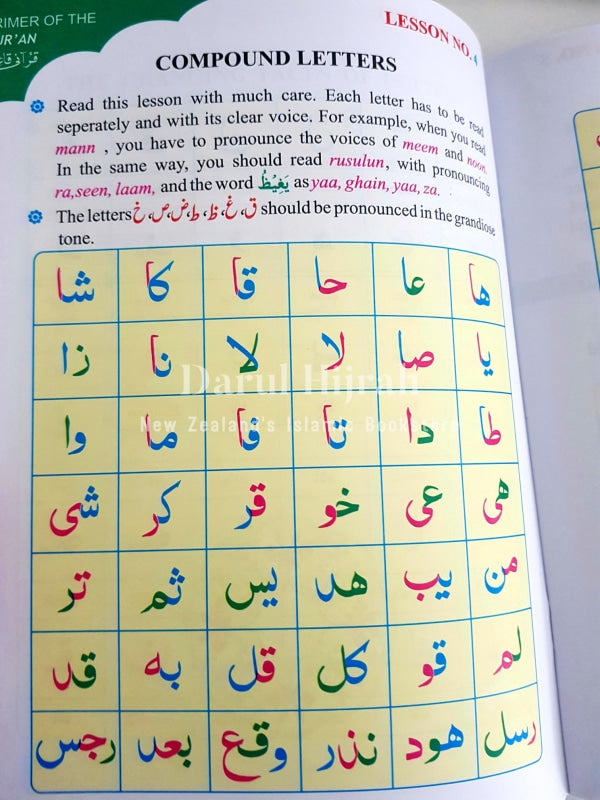 RIMER OF THE
UR'AN
LESSON NO. 4
COMPOUND LETTERS
Read this lesson with much care. Each letter has to be read
seperately and with its clear voice. For example, when you read
mann , you have to pronounce the voices of meem and noon.
In the same way, you should read rusulun, with pronouncing
ra,seen, laam, and the word يَغِيْظُ as yaa, ghain, yaa, za.
The letters ق،غ،ظ،ط،ض،ص،خ should be pronounced in the grandiose
tone.
ها عا حا قا كا شا
يا صا لا لا نا زا
طا دا تا فا ما وا
هى عى خو قر كر شى
من يب هد يس ثم تر
لم قو كل قل به قد
رسل هود نذر وقع بعد رجس
Darul Hijrah
New Zealand's Islamic Bookstore